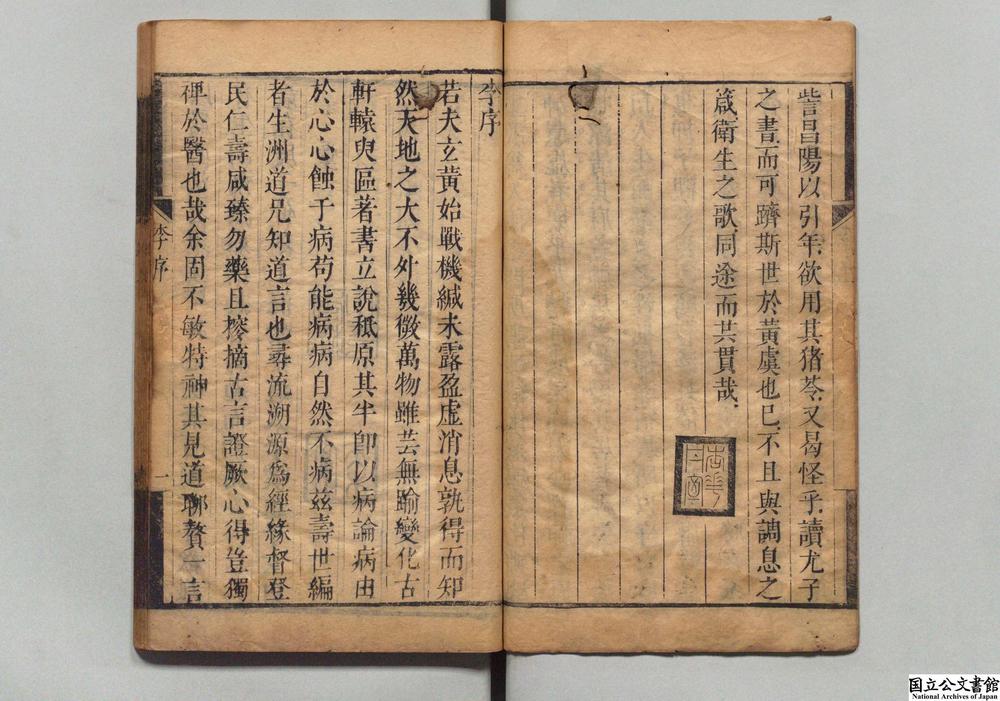 訾昌陽以引年欲用其猪苓又曷怪乎讀尤子
之書而可躋斯世於黃虞也已不且與調息之
箴衛生之歌同途而共貫哉
李序
若夫玄黃始戰機緘未露盈虛消息孰得而知
然天地之大不外幾微萬物雖芸無踰變化古
軒轅臾區著書立說秪原其半卽以病論病由
於心心蝕于病苟能病病自然不病兹壽世編
者生洲道兄知道言也尋流溯源爲經緣督登
民仁壽咸臻勿藥且摉摘古言證厥心得豈獨
禆於醫也哉余固不敏特神其見道聊贅一言
李序
一
国立公文書館
National Archives of Japan